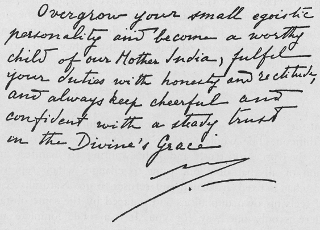 Overgrow your small egoistic
personality and become a worthy
child of our Mother India, fulfil
your duties with honesty and rectitude,
and always keep cheerful and
confident with a steady trust
on the Divine's Grace